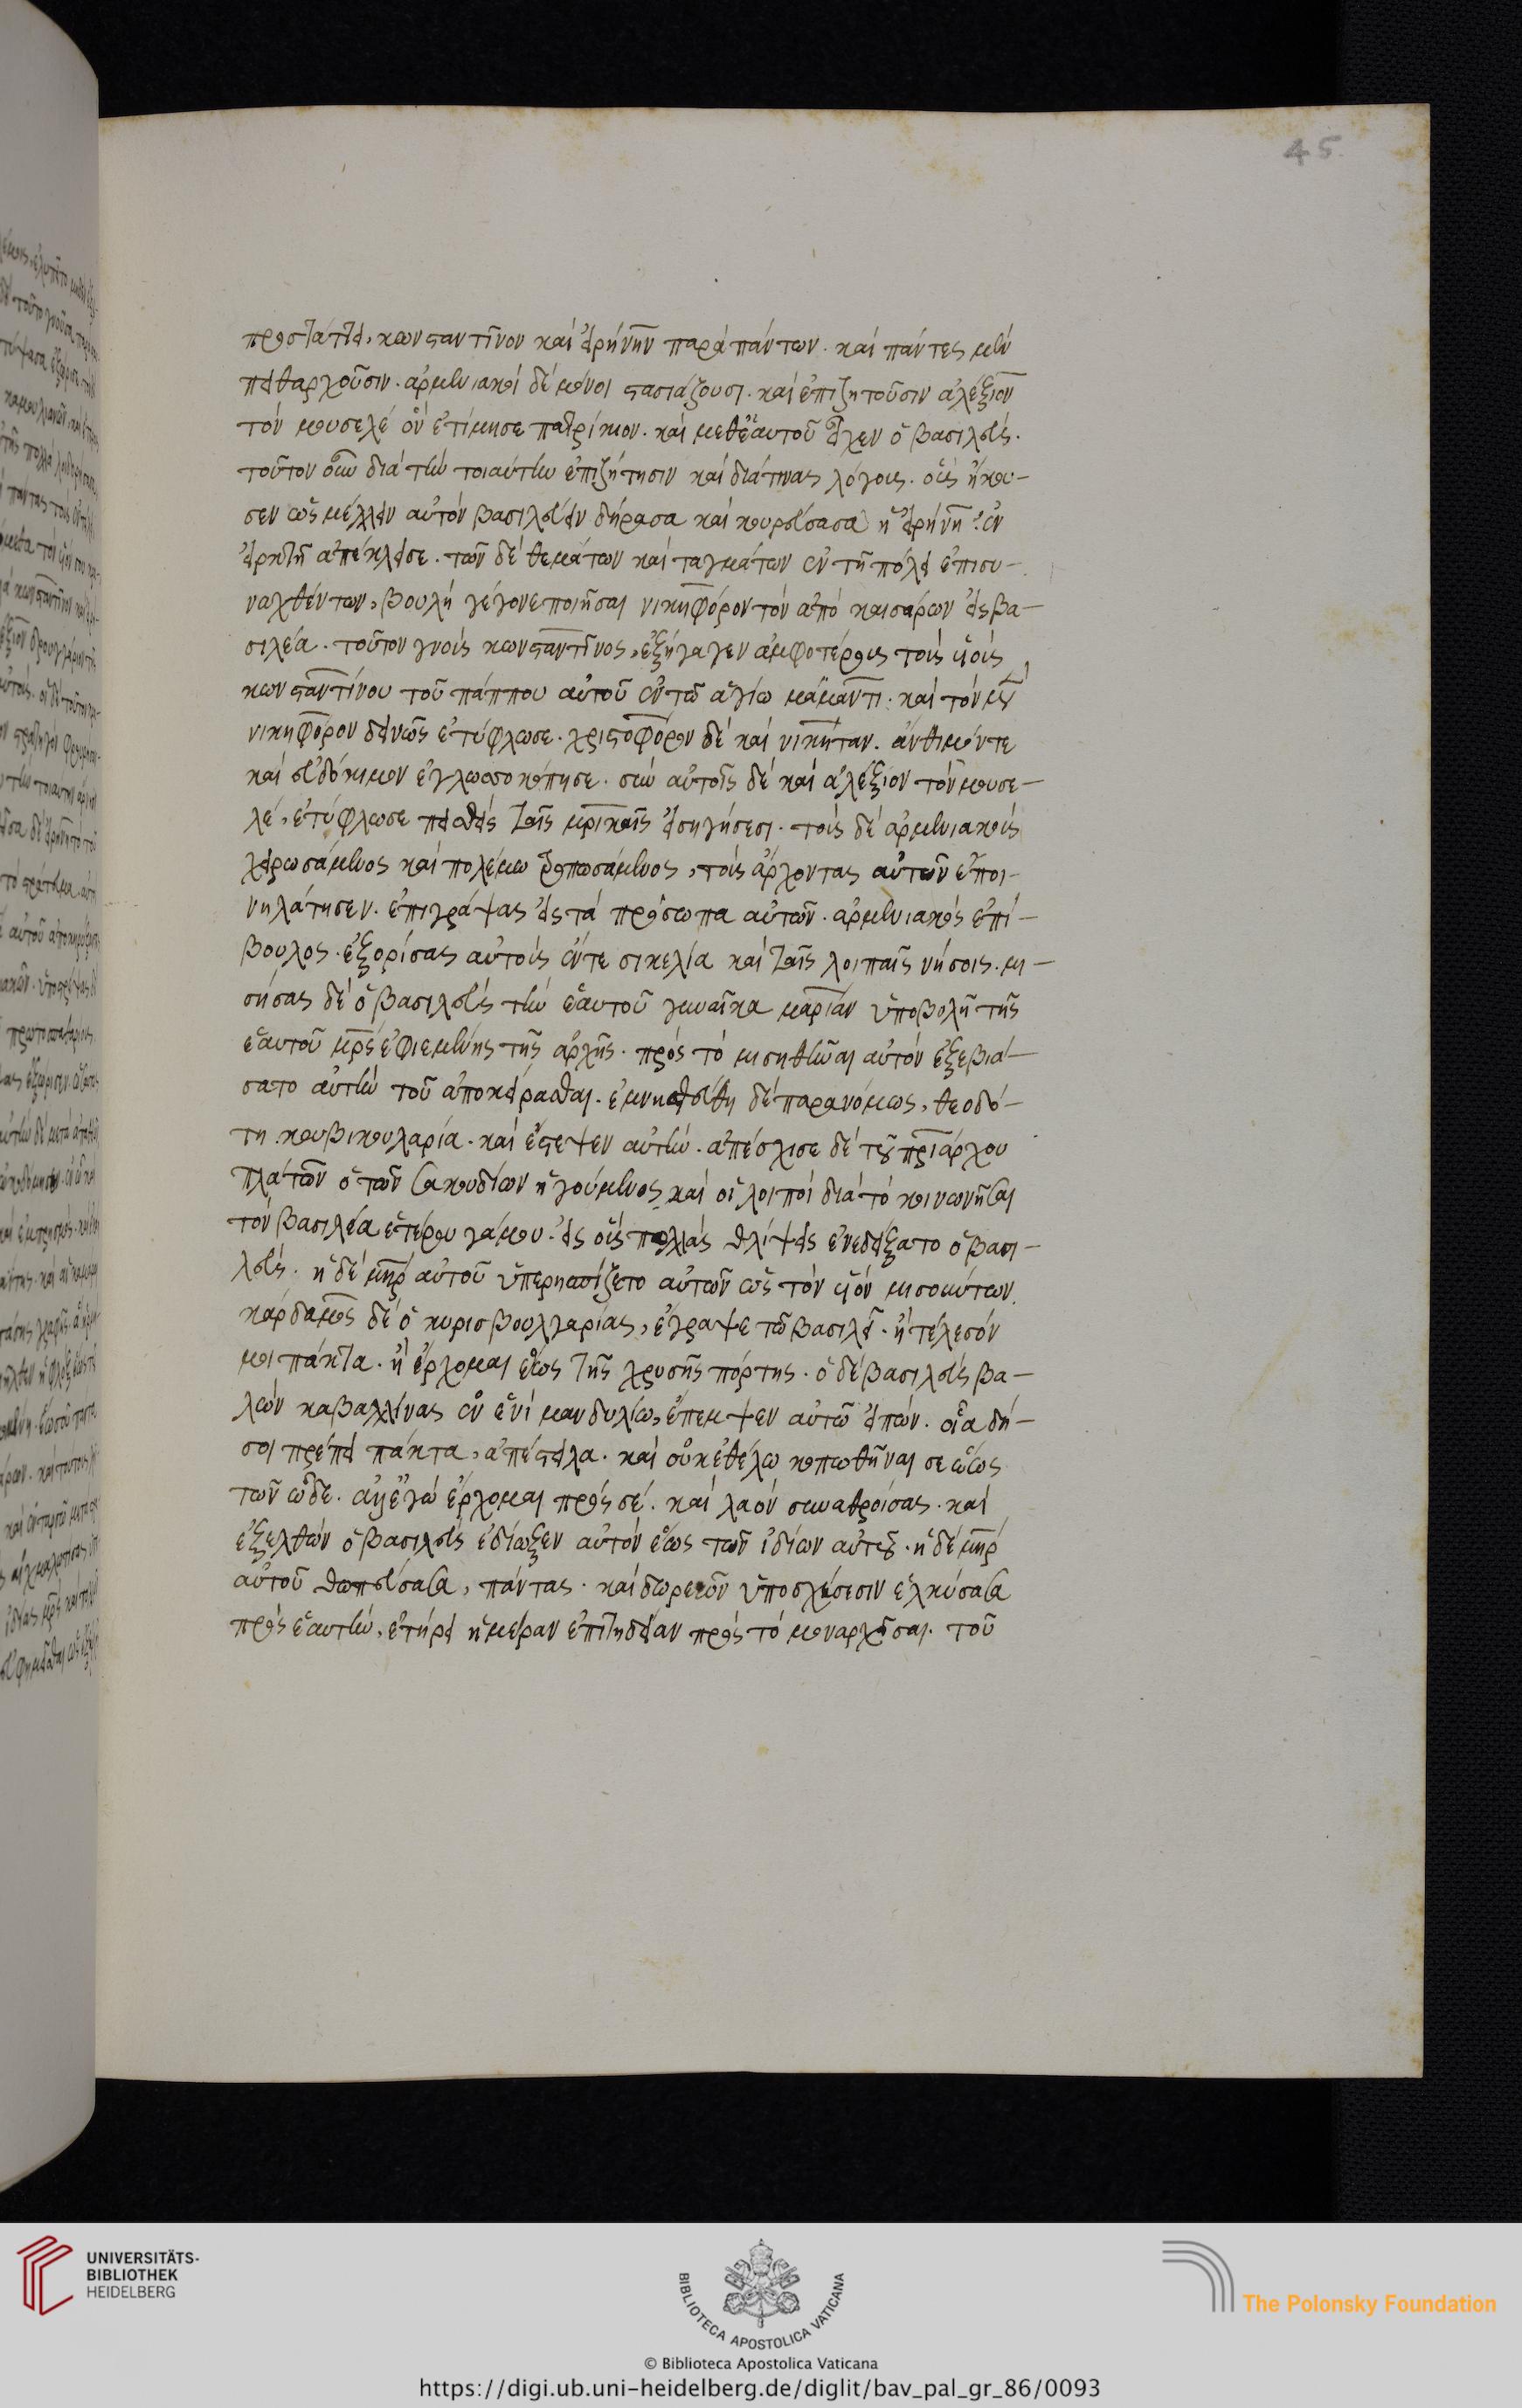 45
προστάττει, κωνσταντῖνον καὶ εἰρήνην παρὰ πάντων. καὶ πάντες μὲν
πειθαρχοῦσιν. ἀρμενιακοὶ δὲ μόνοι στασιάζουσι. καὶ ἐπιζητοῦσιν ἀλέξιον
τὸν μουσελὲ ὃν ἐτίμησε πατρίκιον. καὶ μεθ' ἑαυτοῦ εἶχεν ὁ βασιλεύς.
τοῦτον οὖν διὰ τὴν τοιαύτην ἐπιζήτησιν καὶ διά τινας λόγους. οὓς ἤκου-
σεν ὡς μέλλειν αὐτὸν βασιλεύειν δήρασα καὶ κουρεύσασα ἡ εἰρήνη ἐν
εἰρκτῇ ἀπέκλεισε. τῶν δὲ θεμάτων καὶ ταγμάτων ἐν τῇ πόλει ἐπισυ-
ναχθέντων, βουλὴ γέγονε ποιῆσαι νικηφόρον τὸν ἀπὸ καισάρων εἰς βα-
σιλέα. τοῦτον γνοὺς κωνσταντῖνος, ἐξήγαγεν ἀμφοτέρους τοὺς υἱοὺς
κωνσταντίνου τοῦ πάππου αὐτοῦ ἐν τῶ ἁγίω μάμαντι. καὶ τὸν μὲν
νικηφόρον δεινῶς ἐτύφλωσε. χριστοφόρον δὲ καὶ νικήταν. ἄνθιμόν τε
καὶ εὐδόκιμον ἐγλωσσοκόπησε. σὺν αὐτοῖς δὲ καὶ ἀλέξιον τὸν μουσε-
λέ, ἐτύφλωσε πεισθεὶς ταῖς μητρικαῖς εἰσηγήσεσι. τοὺς δὲ ἀρμενιακοὺς
χειρωσάμενος καὶ πολέμω τροπωσάμενος, τοὺς ἄρχοντας αὐτῶν ἐποι-
νηλάτησεν. ἐπιγράψας εἰς τὰ πρόσωπα αὐτῶν. ἀρμενιακὸς ἐπί-
βουλος. ἐξορίσας αὐτοὺς ἔν τε σικελία καὶ ταῖς λοιπαῖς νήσοις. μι-
σήσας δὲ ὁ βασιλεὺς τὴν ἑαυτοῦ γυναῖκα μαρίαν ὑποβολῇ τῆς
ἑαυτοῦ μητρὸς ἐφιεμένης τῆς ἀρχῆς. πρὸς τὸ μισηθῆναι αὐτὸν ἐξεβιά-
σατο αὐτὴν τοῦ ἀποκείρασθαι. ἐμνηστεύθη δὲ παρανόμως, θεοδό-
τη κουβικουλαρία. καὶ ἔστεψεν αὐτήν. ἀπέσχισε δὲ τοῦ πατριάρχου
πλάτων ὁ τῶν σακουδίων ἡγούμενος καὶ οἱ λοιποὶ διὰ τὸ κοινωνῆσαι
τὸν βασιλέα ἑτέρου γάμου. εἰς οὓς πολλὰς θλίψεις ἐνεδείξατο ὁ βασι-
λεύς. ἡ δὲ μήτηρ αὐτοῦ ὑπερησπίζετο αὐτῶν ὡς τὸν υἱὸν μισούντων.
κάρδαμος δὲ ὁ κύρις βουλγαρίας, ἔγραψε τῶ βασιλεῖ. ἢ τέλεσόν
μοι πάκτα. ἢ ἔρχομαι ἕως τῆς χρυσῆς πόρτης. ὁ δὲ βασιλεὺς βα-
λὼν καβαλλίνας ἐν ἑνὶ μανδυλίω, ἔπεμψεν αὐτῶ εἰπών. οἷα δή-
σοι πρέπει πάκτα, ἀπέστειλα. καὶ οὐκ ἐθέλω κοπωθῆναι σε ἕως
τῶν ὧδε. ἀλλ' ἐγὼ ἔρχομαι πρὸς σέ. καὶ λαὸν συναθροίσας. καὶ
ἐξελθὼν ὁ βασιλεὺς ἐδίωξεν αὐτὸν ἕως τῶν ἰδίων αὐτοῦ. ἡ δὲ μήτηρ
αὐτοῦ θωπεύσασα, πάντας. καὶ δωρεῶν ὑποσχέσεσιν ἑλκύσασα
πρὸς ἑαυτήν, ἐτήρει ἡμέραν ἐπιτηδείαν πρὸς τὸ μοναρχῆσαι. τοῦ
UNIVERSITÄTS-
BIBLIOTHEK
HEIDELBERG
BIBLIOTECA APOSTOLICA VATICANA
The Polonsky Foundation
© Biblioteca Apostolica Vaticana
https://digi.ub.uni-heidelberg.de/diglit/bav_pal_gr_86/0093